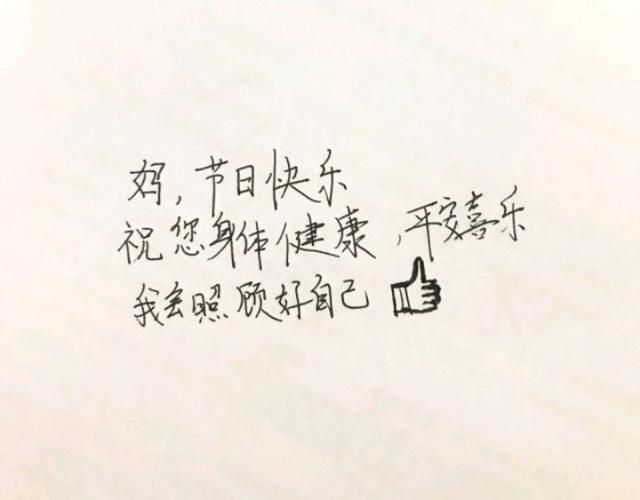 妈,节日快乐
祝您身体健康,平安喜乐
我会照顾好自己